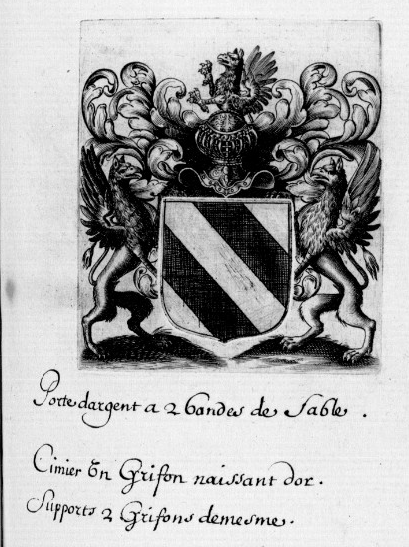 Porte dargent a 2 bandes de Sable .
Cimier Un Grifon naissant dor .
Supports 2 Grifons demesme .